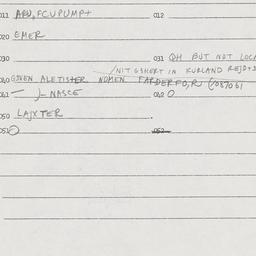 011 ARU, FCUPUMP+ 012
020 EMER
030 031 QH BUT NOT LOCA
/NIT GSHERT IN KURLAND REJD+S
040 GIVEN ALETISTER NOMEN FARDERFO,R (/087061
041 — }- NASCE 042 O
050 LAJXTER
051 O 052